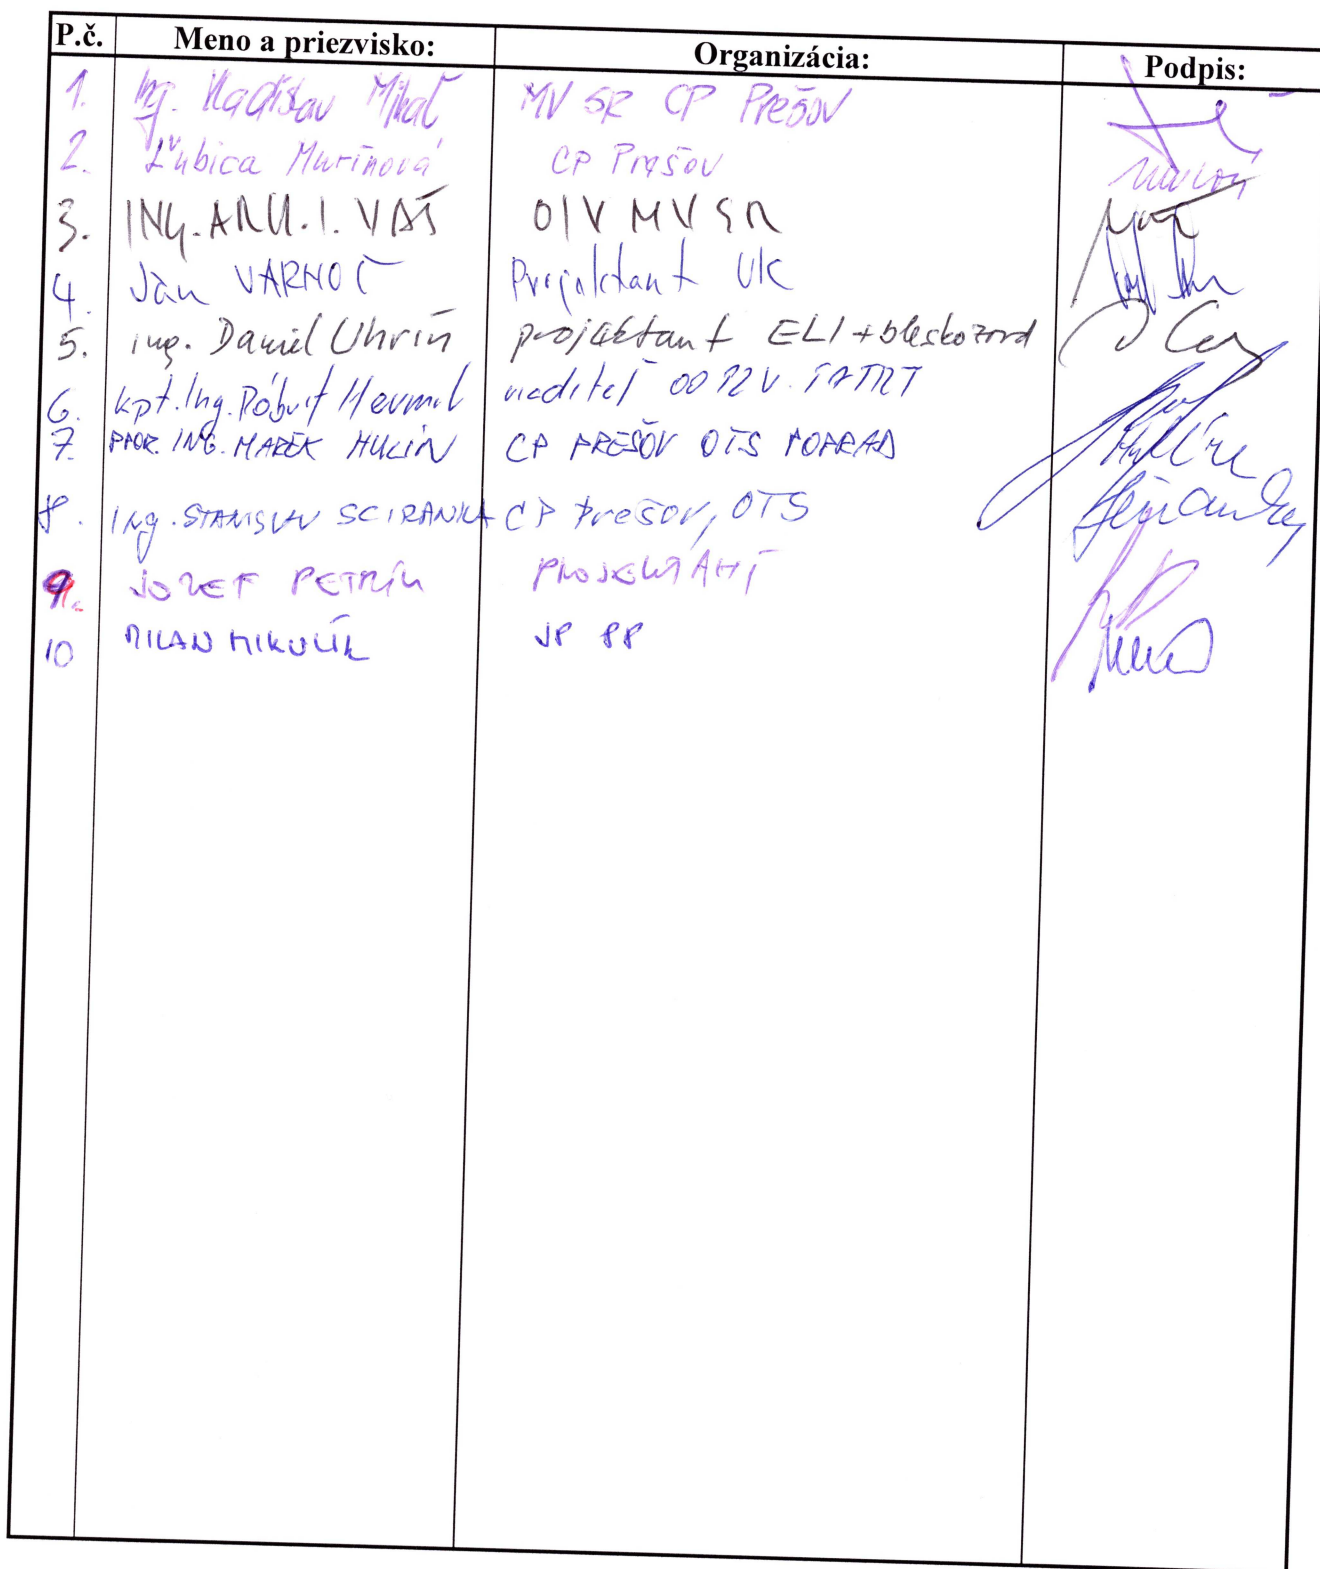 P.č. Meno a priezvisko: Organizácia: Podpis:
1. Ing. Vladislav MV SR CP Prešov
2. Ľubica Murínová CP Prešov
3. ING. ARCH. I. VAŠ OIV MV SR
4. Ján VARHOČ Projektant UK
5. ing. Daniel Uhrín projektant ELI + bleskozvod
6. kpt. Ing. Róbert riaditeľ OO PZ V. TATRY
7. ING. MAREK HUKIN CP PREŠOV OTS POPRAD
8. Ing. STANISLAV SCIRANKA CP Prešov, OTS
9. JOZEF PETRÍK PROJEKTANT
10 MILAN MIKULÍK JP PP